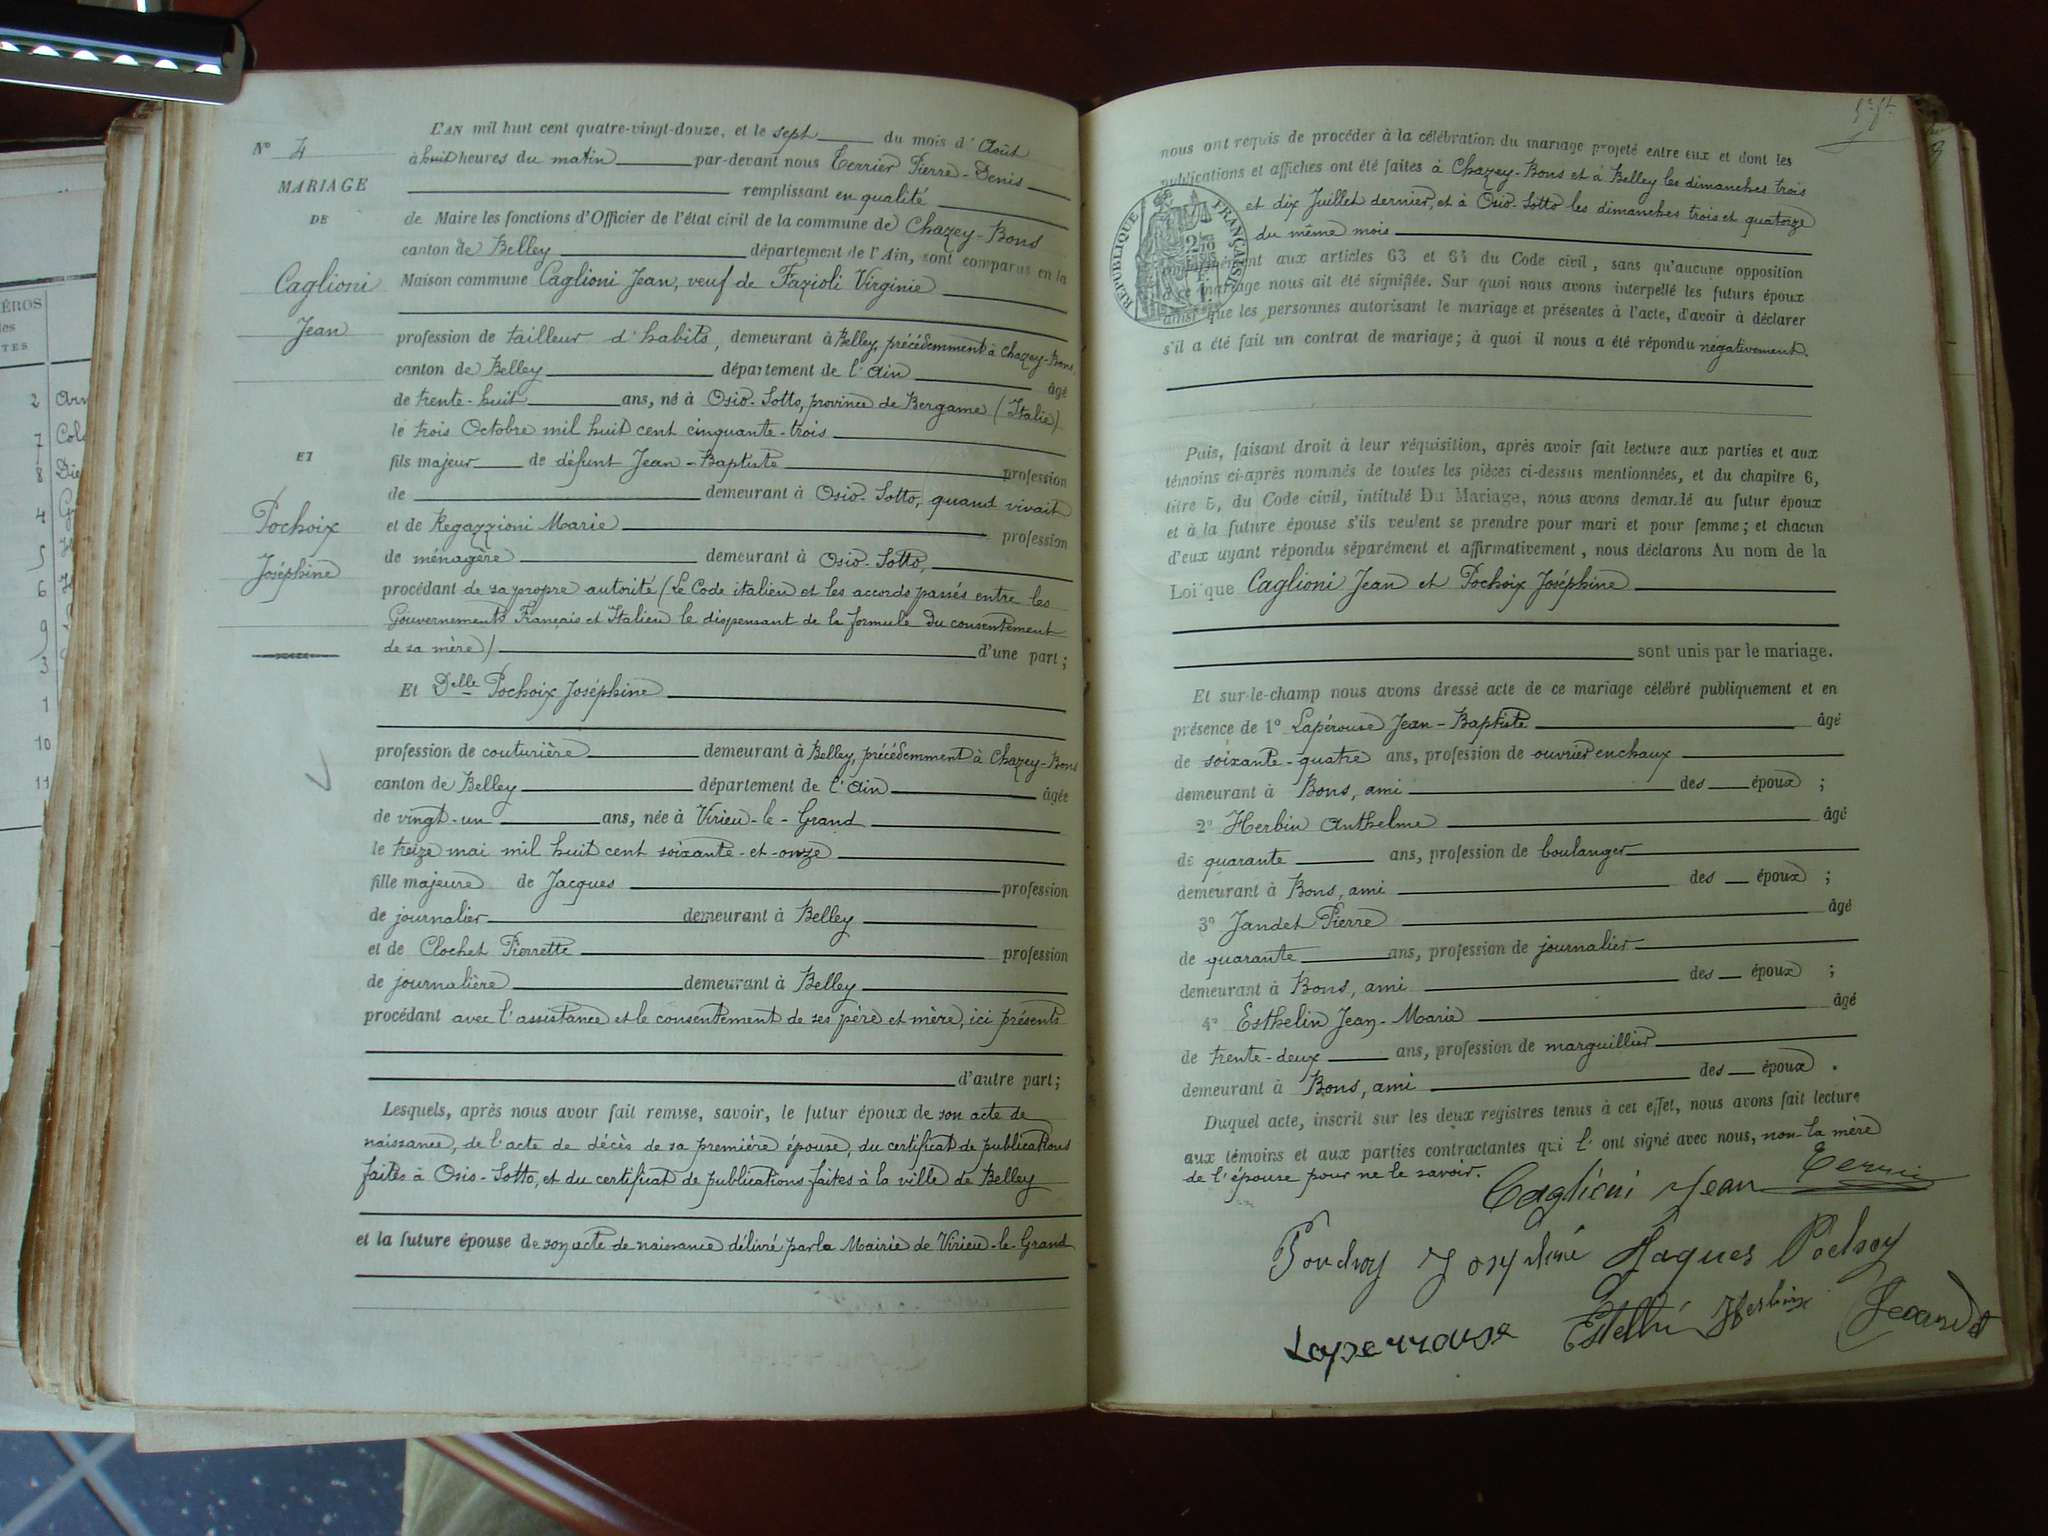 N° 4
MARIAGE
DE
Caglioni
Jean
ET
Pochoix
Joséphine
L'AN mil huit cent quatre-vingt-douze, et le sept du mois d'Août
à huit heures du matin par-devant nous Terrier Pierre-Denis
remplissant en qualité
de Maire les fonctions d'Officier de l'état civil de la commune de Chazey-Bons
canton de Belley département de l'Ain, sont comparus en la
Maison commune Caglioni Jean, veuf de Fazioli Virginie
profession de tailleur d'habits, demeurant à Belley, précédemment à Chazey-Bons,
canton de Belley département de l'Ain âgé
de trente-huit ans, né à Osio-Sotto, province de Bergame (Italie)
le trois Octobre mil huit cent cinquante-trois
fils majeur de défunt Jean-Baptiste profession
de demeurant à Osio-Sotto, quand vivait
et de Regazzioni Marie profession
de ménagère demeurant à Osio-Sotto,
procédant de sa propre autorité (Le Code italien et les accords passés entre les
Gouvernements Français et Italien le dispensant de la formule du consentement
de sa mère) d'une part;
Et Delle Pochoix Joséphine
profession de couturière demeurant à Belley, précédemment à Chazey-Bons
canton de Belley département de l'Ain âgée
de vingt-un ans, née à Virieu-le-Grand
le treize mai mil huit cent soixante-et-onze
fille majeure de Jacques profession
de journalier demeurant à Belley
et de Clochet Pierrette profession
de journalière demeurant à Belley
procédant avec l'assistance et le consentement de ses père et mère, ici présents
d'autre part;
Lesquels, après nous avoir fait remise, savoir, le futur époux de son acte de
naissance, de l'acte de décès de sa première épouse, du certificat de publications
faites à Osio-Sotto, et du certificat de publications faites à la ville de Belley
et la future épouse de son acte de naissance délivré par la Mairie de Virieu-le-Grand
nous ont requis de procéder à la célébration du mariage projeté entre eux et dont les
publications et affiches ont été faites à Chazey-Bons et à Belley les dimanches trois
et dix Juillet dernier, et à Osio-Sotto les dimanches trois et quatorze
du même mois
RÉPUBLIQUE FRANÇAISE
conformément aux articles 63 et 64 du Code civil, sans qu'aucune opposition
à ce mariage nous ait été signifiée. Sur quoi nous avons interpellé les futurs époux
ainsi que les personnes autorisant le mariage et présentes à l'acte, d'avoir à déclarer
s'il a été fait un contrat de mariage; à quoi il nous a été répondu négativement.
Puis, faisant droit à leur réquisition, après avoir fait lecture aux parties et aux
témoins ci-après nommés de toutes les pièces ci-dessus mentionnées, et du chapitre 6,
titre 5, du Code civil, intitulé Du Mariage, nous avons demandé au futur époux
et à la future épouse s'ils veulent se prendre pour mari et pour femme; et chacun
d'eux ayant répondu séparément et affirmativement, nous déclarons Au nom de la
Loi que Caglioni Jean et Pochoix Joséphine
sont unis par le mariage.
Et sur-le-champ nous avons dressé acte de ce mariage célébré publiquement et en
présence de 1° Lapérouse Jean-Baptiste âgé
de soixante-quatre ans, profession de ouvrier en chaux
demeurant à Bons, ami des époux;
2° Herbin Anthelme âgé
de quarante ans, profession de boulanger
demeurant à Bons, ami des époux;
3° Jandet Pierre âgé
de quarante ans, profession de journalier
demeurant à Bons, ami des époux;
4° Esthelin Jean-Marie âgé
de trente-deux ans, profession de marguillier
demeurant à Bons, ami des époux.
Duquel acte, inscrit sur les deux registres tenus à cet effet, nous avons fait lecture
aux témoins et aux parties contractantes qui l'ont signé avec nous, non la mère
de l'épouse pour ne le savoir.
Caglioni Jean
Jaques
Herbin
Laperrouse